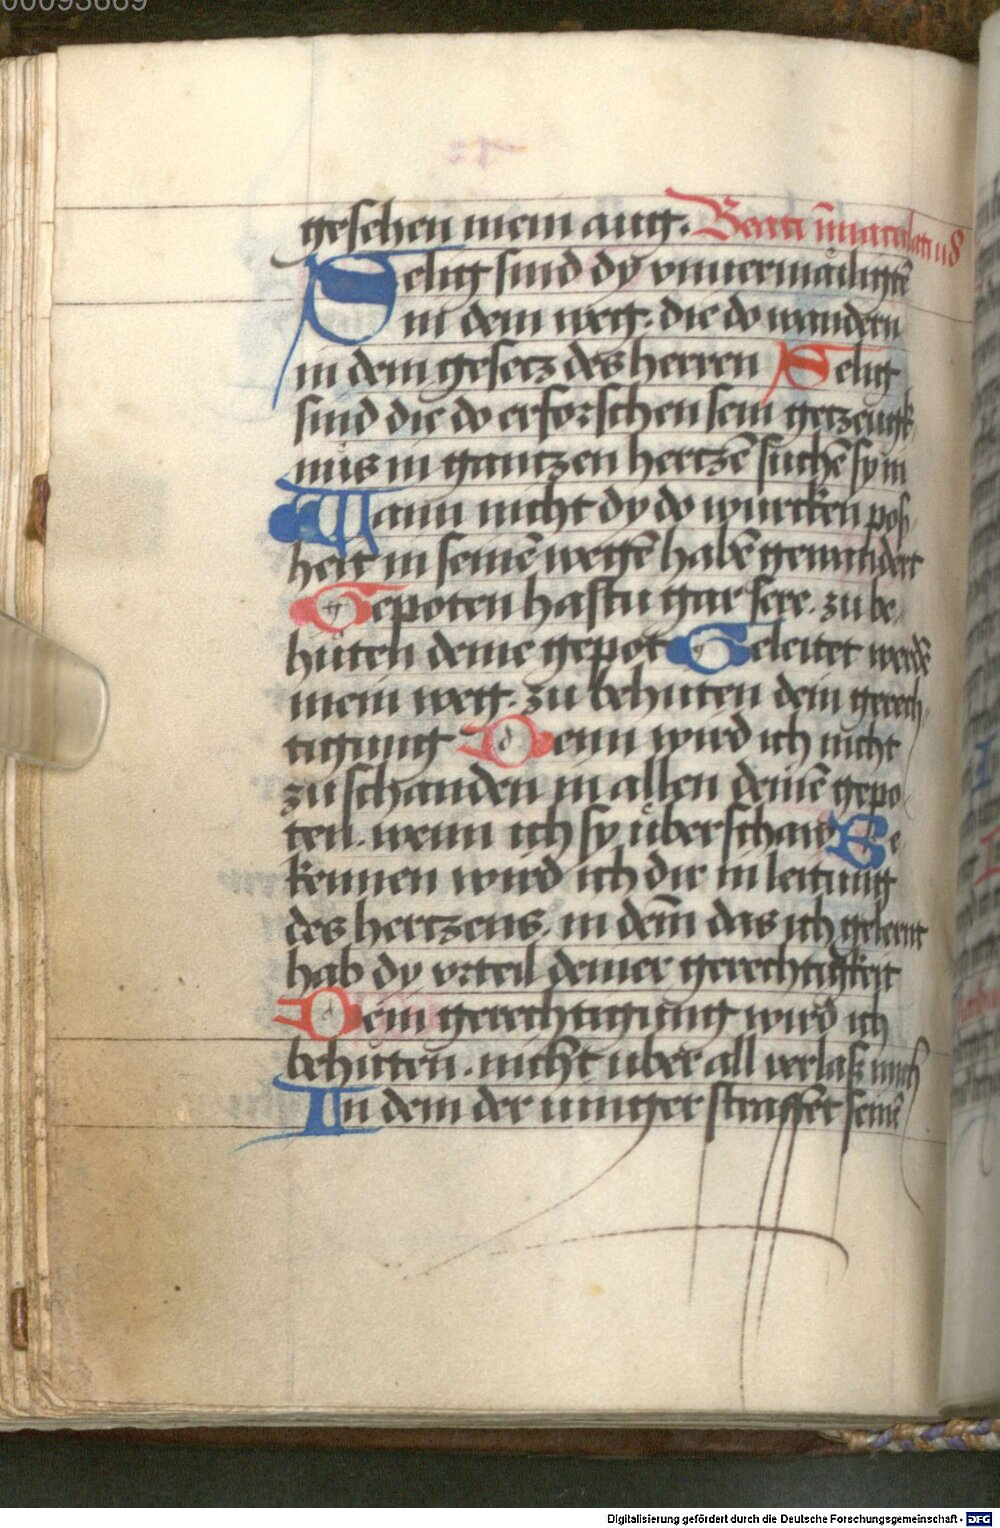 00093669
gesehen mein aug. Beati im̄aculati v8
Selig sind dy vnuermailigtē
in dem weg. die do wandern
in dem gesetz des herren Selig
sind die do erforschen sein getzeugk
nus in gantzen hertzē suchē sy in
Wann nicht dy do wurcken pos
heit in seinē wegē habē gewandert
Gepoten hastu gar sere. zu be
hüten deine gepot Geleitet werdē
mein weg. zu behuten dein gerech
tigung Denn wird ich nicht
zu schanden in allen deinē gepo
ten. wenn ich sy überschaw Be
kennen wird ich dir in leitung
des hertzens. in dem̄ das ich gelernt
hab dy vrteil deiner gerechtigkeit
Dein gerechtigung wird ich
behüten. nicht uber all verlas mich
In dem der iunger straffet seinē
Digitalisierung gefördert durch die Deutsche Forschungsgemeinschaft - DFG